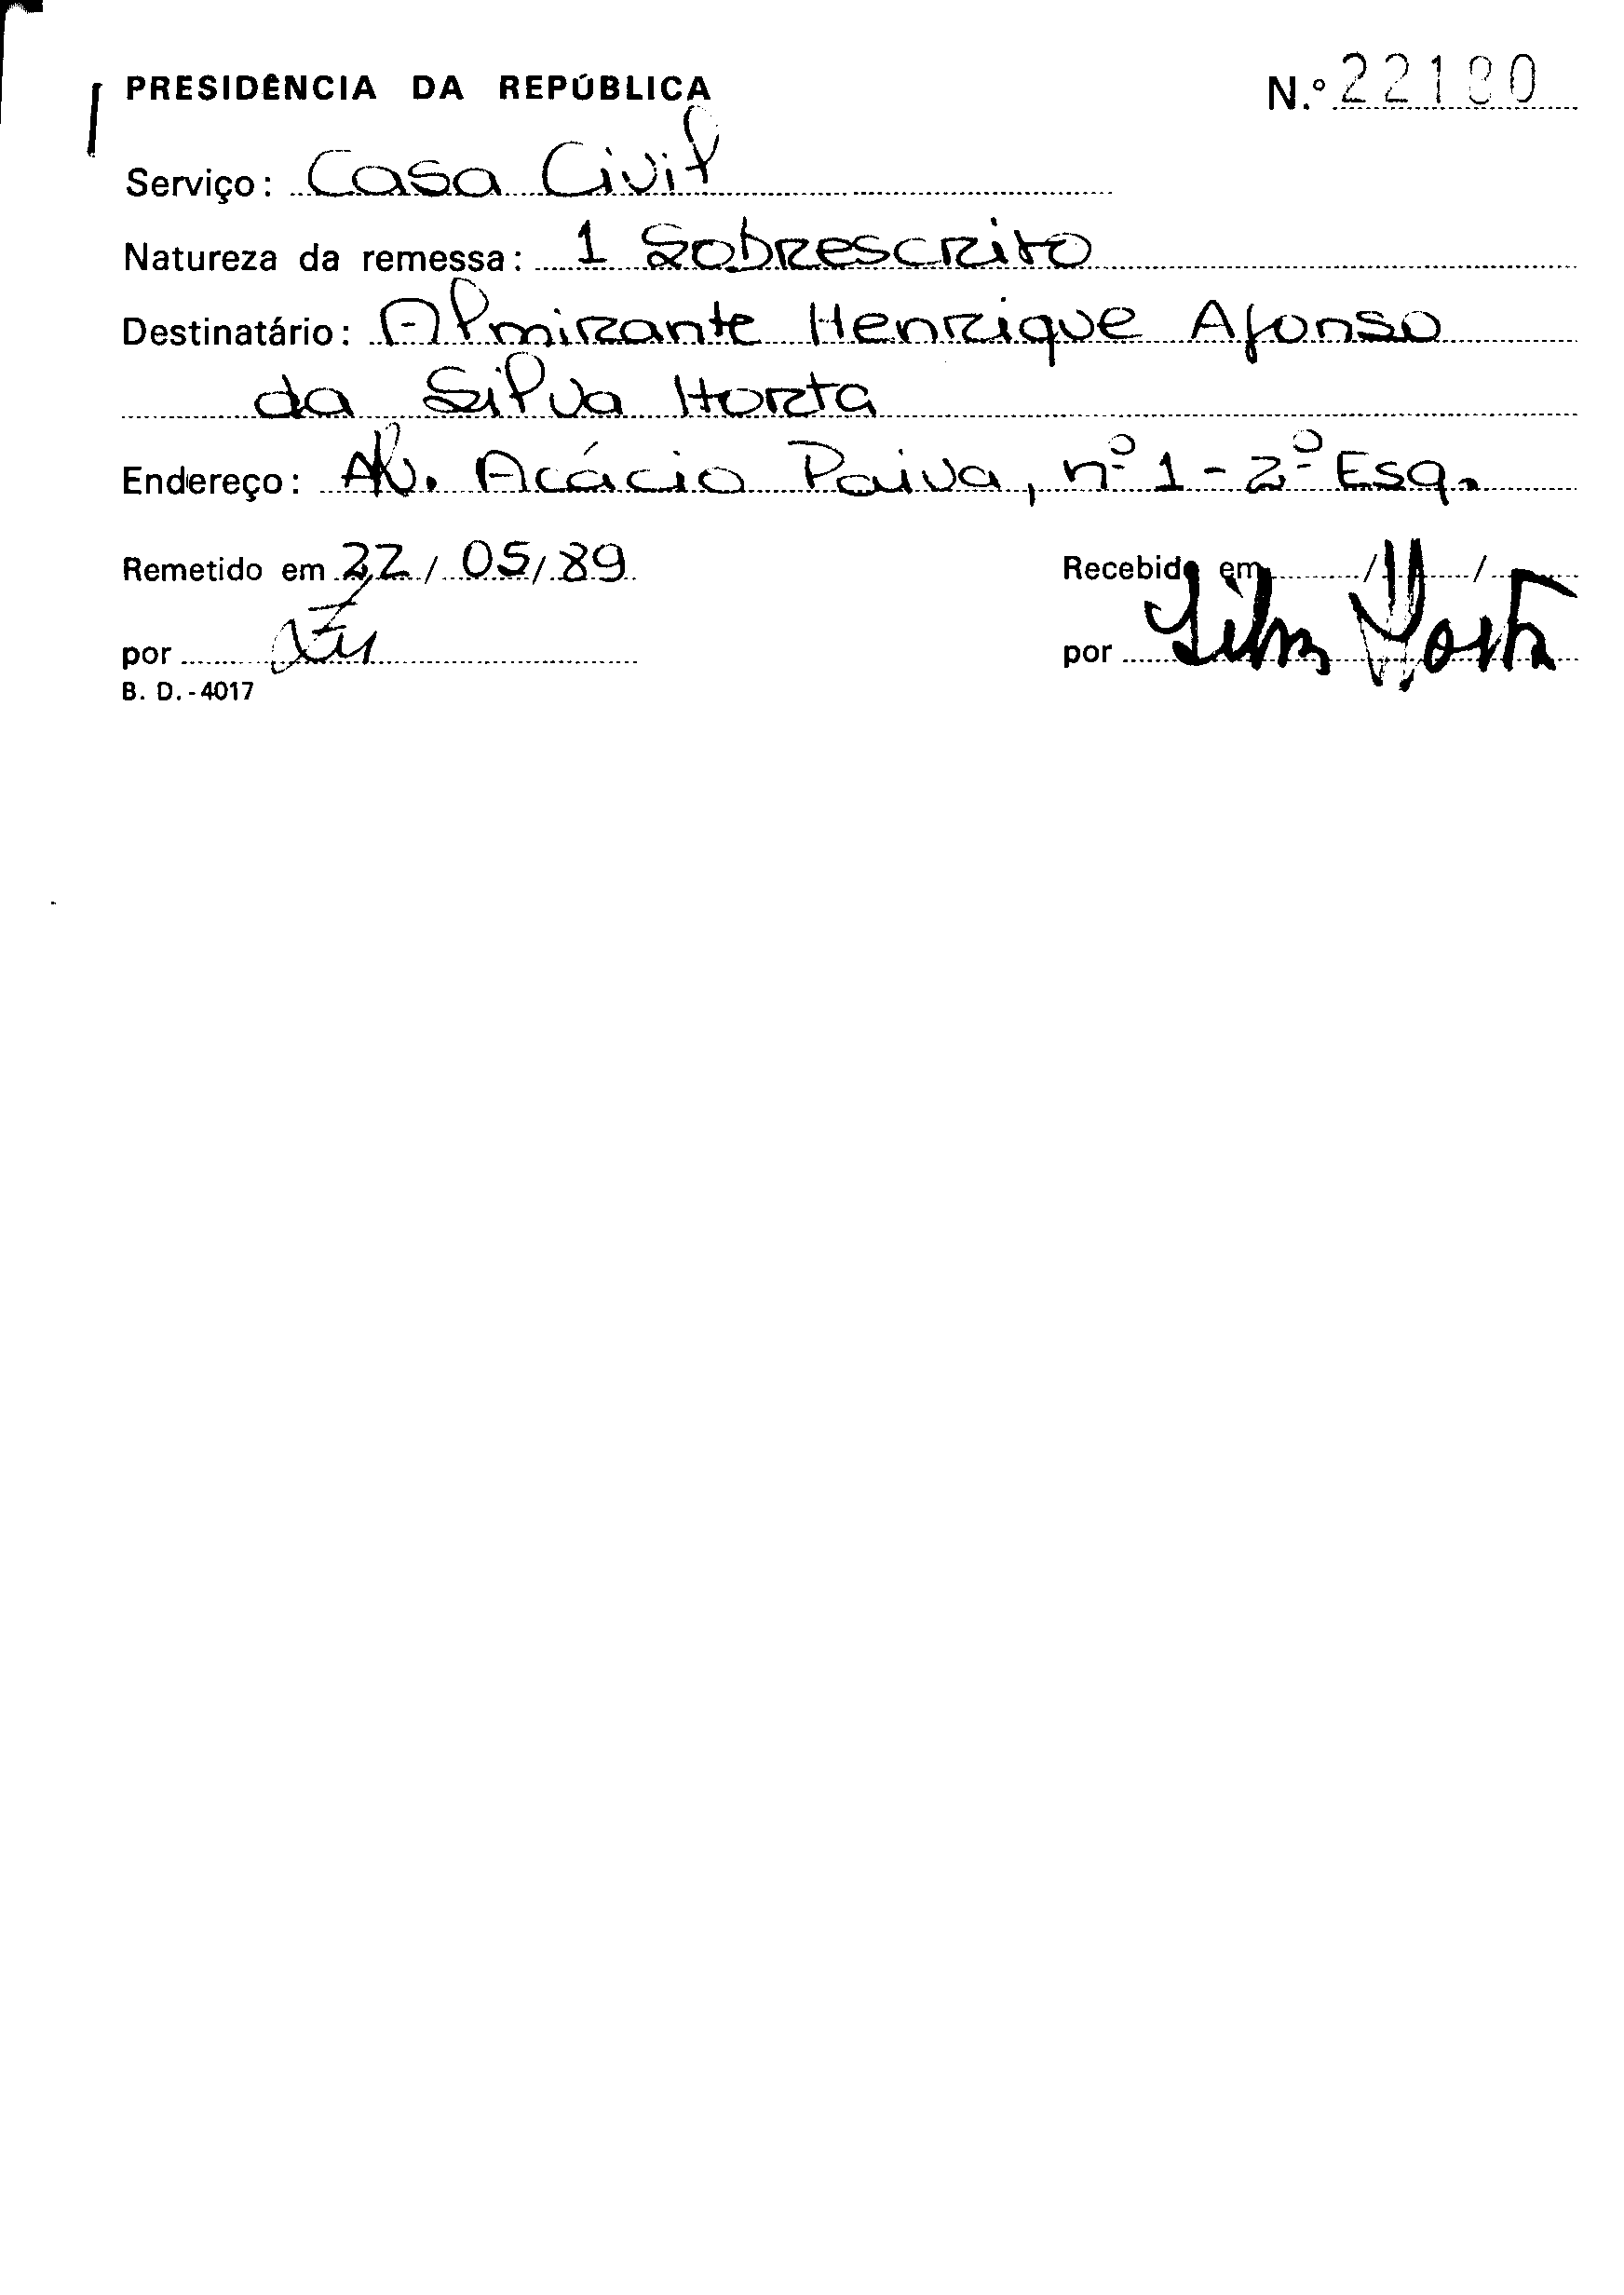 PRESIDÊNCIA DA REPÚBLICA N.º 22180
Serviço: Casa Civil
Natureza da remessa: 1 Sobrescrito
Destinatário: Almirante Henrique Afonso
da Silva Horta
Endereço: Av. Acácio Paiva, nº 1 - 2º Esq.
Remetido em 22/05/89 Recebido em / /
por por Silva Horta
B. D. - 4017